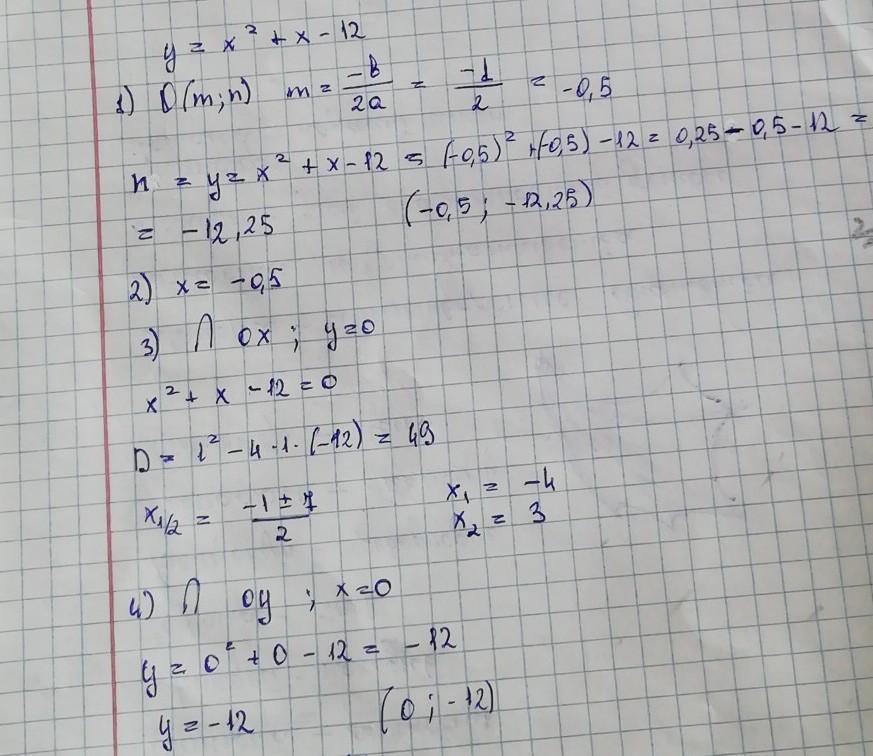 y = x² + x - 12
1) O(m;n) m = -b/2a = -1/2 = -0,5
n = y = x² + x - 12 = (-0,5)² + (-0,5) - 12 = 0,25 - 0,5 - 12 =
= -12,25 (-0,5 ; -12,25)
2) x = -0,5
3) ∩ ox ; y=0
x² + x - 12 = 0
D = 1² - 4 · 1 · (-12) = 49
x₁/₂ = -1 ± 7/2 x₁ = -4
x₂ = 3
4) ∩ oy ; x=0
y = 0² + 0 - 12 = -12
y = -12 (0 ; -12)